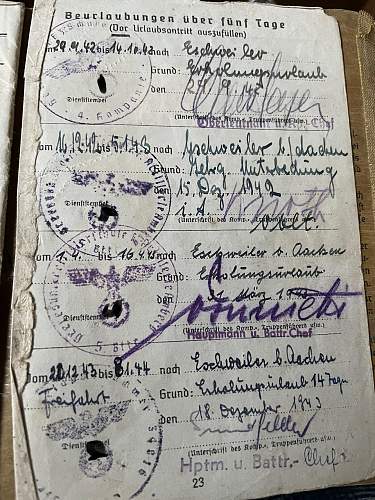 Beurlaubungen über fünf Tage
(Vor Urlaubsantritt auszufüllen)
vom 29.9.42 bis 14.10.42 nach Eschweiler
Grund: Erholungsurlaub
den 29.9.42
Dienststempel
4. Kompanie
(Unterschrift des Komp.-, Truppenführers usw.)
Oberleutnant u. Chef
vom 16.12.42 bis 5.1.43 nach Eschweiler b/Aachen
Grund:
den 15. Dez. 1942
i. A.
Dienststempel
(Unterschrift des Komp.-, Truppenführers usw.)
vom 1.4. bis 16.4.43 nach Eschweiler b. Aachen
Grund: Erholungsurlaub
den März
Dienststempel
5. Bttr.
(Unterschrift des Komp.-, Truppenführers usw.)
Hauptmann u. Battr.Chef
vom 20.12.43 bis 8.1.44 nach Eschweiler b. Aachen
Freifahrt Grund: Erholungsurlaub 14 Tage
den 18. Dezember 1943
Dienststempel
(Unterschrift des Komp.-, Truppenführers usw.)
Hptm. u. Battr.- Chef
23